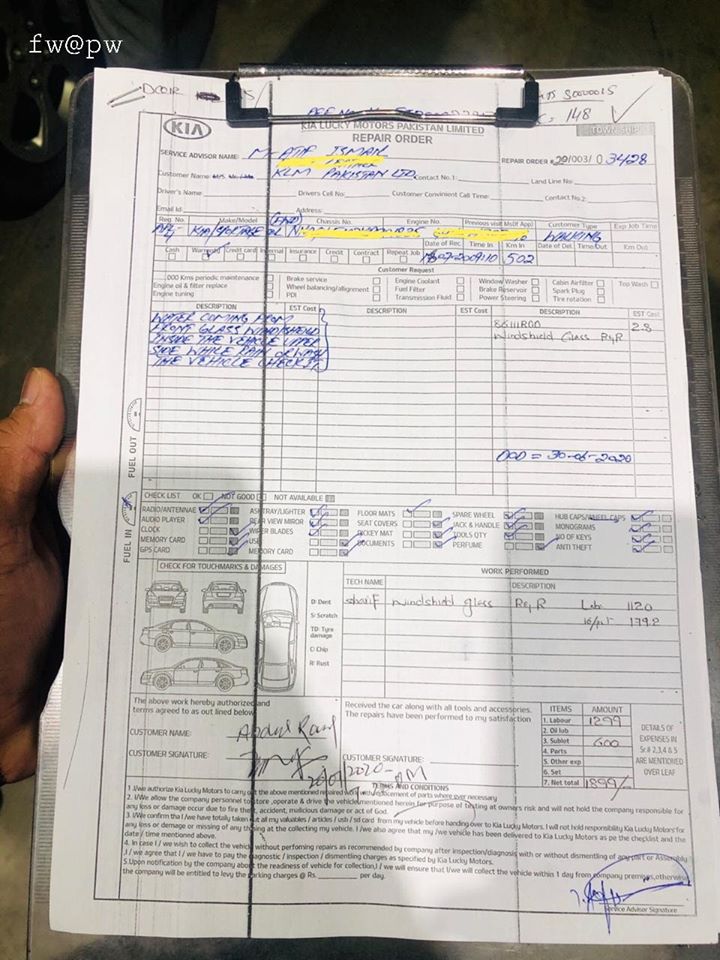 fw@pw
DOOR
148
KIA
KIA LUCKY MOTORS PAKISTAN LIMITED
TOWN SHIP
REPAIR ORDER
SERVICE ADVISOR NAME: M-ATIF
REPAIR ORDER # 29/003/ 0 3428
Customer Name: KLM PAKISTAN LTD. Contact No.1: Land Line No.:
Driver's Name: Drivers Cell No.: Customer Convinient Call Time: Contact No.2:
Email Id: Address:
Reg. No. Make/Model Chassis No. Engine No. Previous visit Ms(If App) Customer Type Exp Job Time
KIA/SPORTAGE WALKING
Cash Warranty Credit card Internal Insurance Credit Contract Repeat Job Date of Rec. Time In Km In Date of Del. Time Out Km Out
502
Customer Request
.000 Kms periodic maintenance Brake service Engine Coolant Window Washer Cabin Airfilter Top Wash
Engine oil & filter replace Wheel balancing/allignment Fuel Filter Brake Reservoir Spark Plug
Engine tuning PDI Transmission Fluid Power Steering Tire rotation
DESCRIPTION EST Cost DESCRIPTION EST Cost DESCRIPTION EST Cost
WATER COMING FROM
FRONT GLASS WINDSHIELD
INSIDE THE VEHICLE
SIDE WHILE RAIN OR WASH
THE VEHICLE CHECK IT
86111R00 2.8
Windshield Glass R&R
DOD = 30-06-2020
FUEL OUT
FUEL IN
CHECK LIST OK NOT GOOD NOT AVAILABLE
RADIO/ANTENNAE ASHTRAY/LIGHTER FLOOR MATS SPARE WHEEL HUB CAPS/WHEEL CAPS
AUDIO PLAYER REAR VIEW MIROR SEAT COVERS JACK & HANDLE MONOGRAMS
CLOCK WIPER BLADES DICKEY MAT TOOLS QTY NO OF KEYS
MEMORY CARD USB DOCUMENTS PERFUME ANTI THEFT
GPS CARD MEMORY CARD
CHECK FOR TOUCHMARKS & DAMAGES
WORK PERFORMED
TECH NAME DESCRIPTION
D: Dent
S: Scratch
TD: Tyre damage
C: Chip
R: Rust
sharif windshield glass R&R 1120
1792
The above work hereby authorized and
terms agreed to as out lined below
CUSTOMER NAME: Abdul Rauf
CUSTOMER SIGNATURE:
Received the car along with all tools and accessories.
The repairs have been performed to my satisfaction
CUSTOMER SIGNATURE:
ITEMS AMOUNT
1. Labour 1299
2. Oil lub
3. Sublet 600
4. Parts
5. Other exp
6. Set
7. Net total 1899/-
DETAILS OF
EXPENSES IN
Sr.# 2,3,4 & 5
ARE MENTIONED
OVER LEAF
TERMS AND CONDITIONS
1. I/we authorize Kia Lucky Motors to carry out the above mentioned repaird work with replacement of parts where ever necessary
2. I/We allow the company personnel to store ,operate & drive the vehicle mentioned herein for purpose of testing at owners risk and will not hold the company responsible for
any loss or damage occur due to fire theft, accident, malicious damage or act of God.
3. I/We confirm tha I/we have totally taken out al my valuables / articles / usb / sd card from my vehicle before handing over to Kia Lucky Motors. I will not hold responsibility Kia Lucky Motors for
any loss or damage or missing of any thing at the collecting my vehicle. I / we also agree that my /we vehicle has been delivered to Kia Lucky Motors as pe the checklist and the
date / time mentioned above.
4. In case I / we wish to collect the vehicle without perfoming repairs as recommended by company after inspection/diagnosis with or without dismentling of any part or Assembly
.I / we agree that I / we have to pay the diagnostic / inspection / dismentling charges as specified by Kia Lucky Motors.
5.Upon notification by the company about the readiness of vehicle for collection,I / we will ensure that I/we will collect the vehicle within 1 day from company premises,otherwise
the company will be entitled to levy the parking charges @ Rs. per day.
Service Adviser Signature